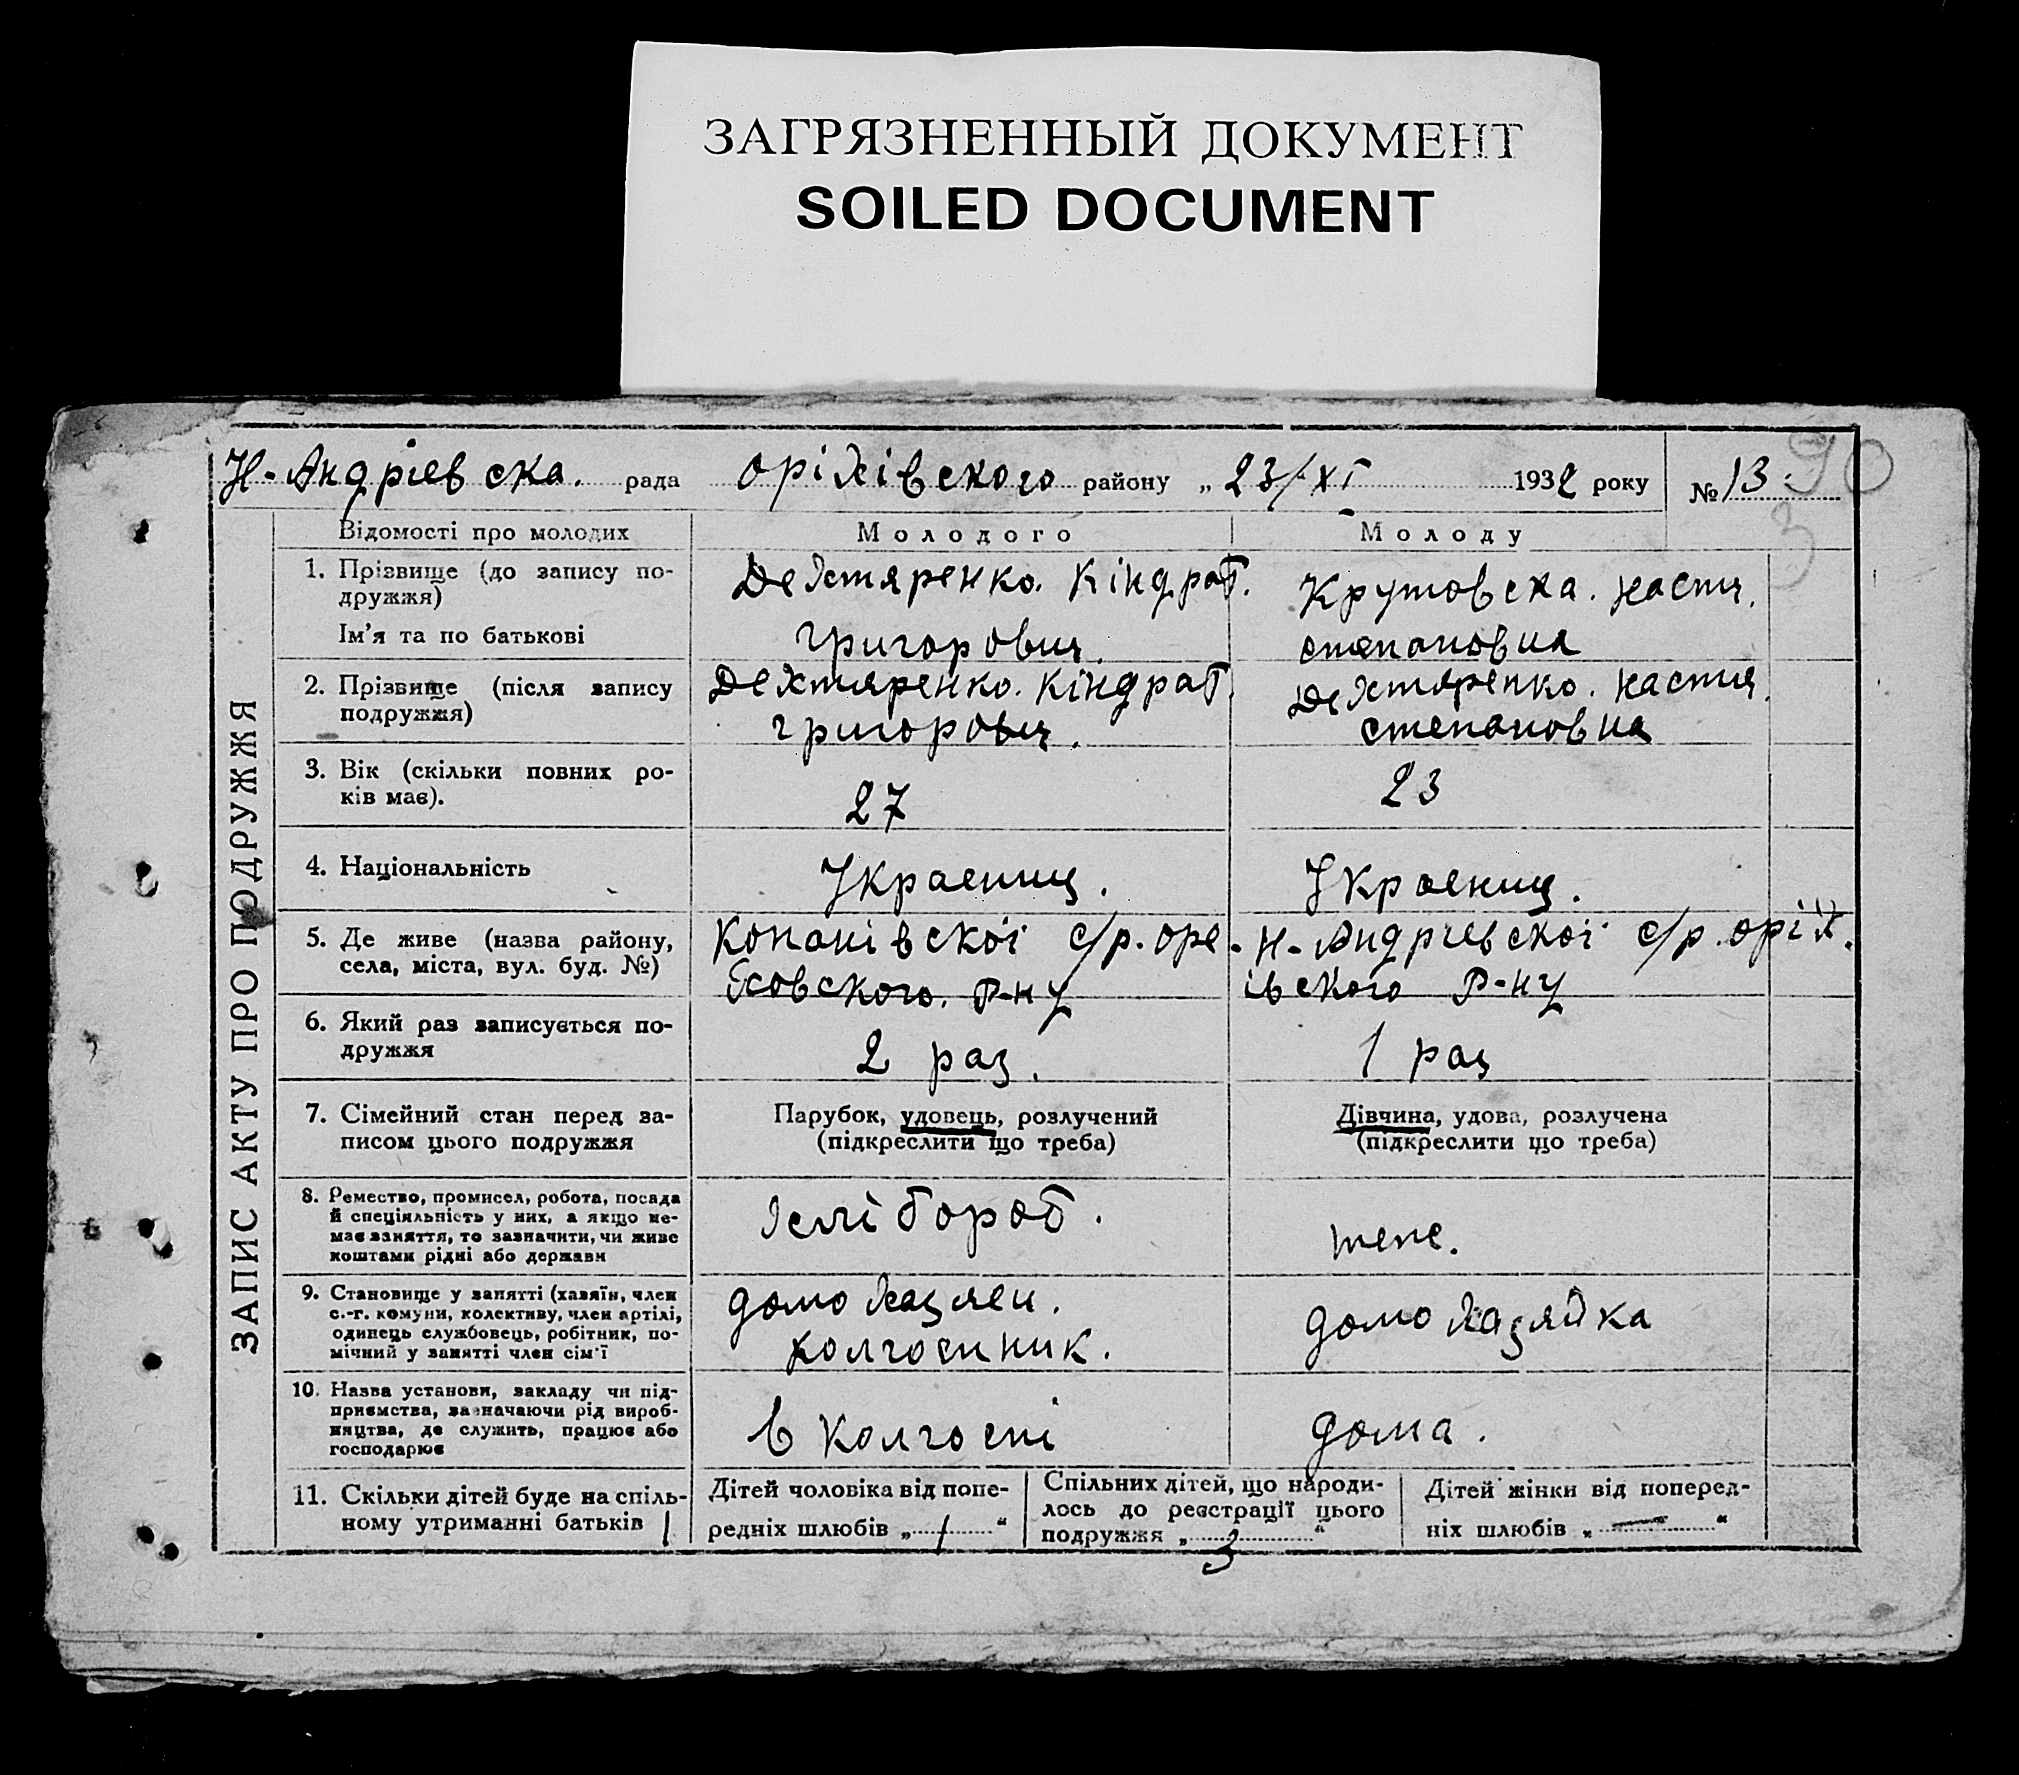 ЗАГРЯЗНЕННЫЙ ДОКУМЕНТ
SOILED DOCUMENT
Н-Андрієвска. рада Оріхівского району „23/XI 1932 року №13
90
3
ЗАПИС АКТУ ПРО ПОДРУЖЖЯ
Відомості про молодих Молодого Молоду
1. Прізвище (до запису по-
дружжя)
Ім'я та по батькові
Дехтяренко. Кіндрат.
Григорович.
Крутовска. Настя.
степановна
2. Прізвище (після запису
подружжя)
Дехтяренко. Кіндрат
григорович.
Дехтяренко. Настя.
степановна
3. Вік (скільки повних ро-
ків має).
27
23
4. Національність
Украениц.
Украениц.
5. Де живе (назва району,
села, міста, вул. буд. №)
Копанівскоі с/р. оре-
ховского. Р-ну
Н-Андрієвскоі с/р. оріх.
івского Р-ну
6. Який раз записується по-
дружжя
2 раз.
1 раз
7. Сімейний стан перед за-
писом цього подружжя
Парубок, удовець, розлучений
(підкреслити що треба)
Дівчина, удова, розлучена
(підкреслити що треба)
8. Ремество, промисел, робота, посада
й спеціяльність у них, а якщо не-
має заняття, то зазначити, чи живе
коштами рідні або держави
хлібороб.
тепе.
9. Становище у занятті (хазяїн, член
с.-г. комуни, колективу, член артілі,
одинець службовець, робітник, по-
мічний у занятті член сім'ї
домохазяен.
колгосник.
домохазяйка
10. Назва установи, закладу чи під-
приємства, зазначаючи рід вироб-
ництва, де служить, працює або
господарює
в колгоспі
дома.
11. Скільки дітей буде на спіль-
ному утриманні батьків 1
Дітей чоловіка від попе-
редніх шлюбів „1“
Спільних дітей, що народи-
лось до реєстрації цього
подружжя „3“
Дітей жінки від поперед-
ніх шлюбів „—“